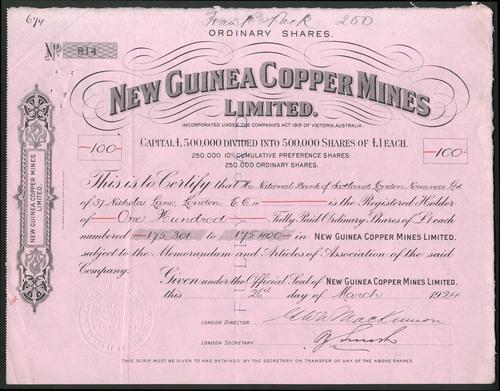 674
Frank Pack 200
ORDINARY SHARES.
No 814
NEW GUINEA COPPER MINES
LIMITED.
INCORPORATED UNDER THE COMPANIES ACT 1915 OF VICTORIA, AUSTRALIA.
CAPITAL £500,000 DIVIDED INTO 500,000 SHARES OF £1 EACH.
250,000 10% CUMULATIVE PREFERENCE SHARES.
250,000 ORDINARY SHARES.
100
100
This is to Certify that The National Bank of Scotland London Nominees Ltd
of 37 Nicholas Lane, London, E.C.4 is the Registered Holder
of One Hundred Fully Paid Ordinary Shares of £1 each
numbered 175,301 to 175,400 in NEW GUINEA COPPER MINES LIMITED,
subject to the Memorandum and Articles of Association of the said
Company.
Given under the Official Seal of NEW GUINEA COPPER MINES LIMITED,
this 26th day of March 1924
LONDON DIRECTOR
LONDON SECRETARY
THIS SCRIP MUST BE GIVEN TO AND RETAINED BY THE SECRETARY ON TRANSFER OF ANY OF THE ABOVE SHARES.
NEW GUINEA COPPER MINES
LIMITED.